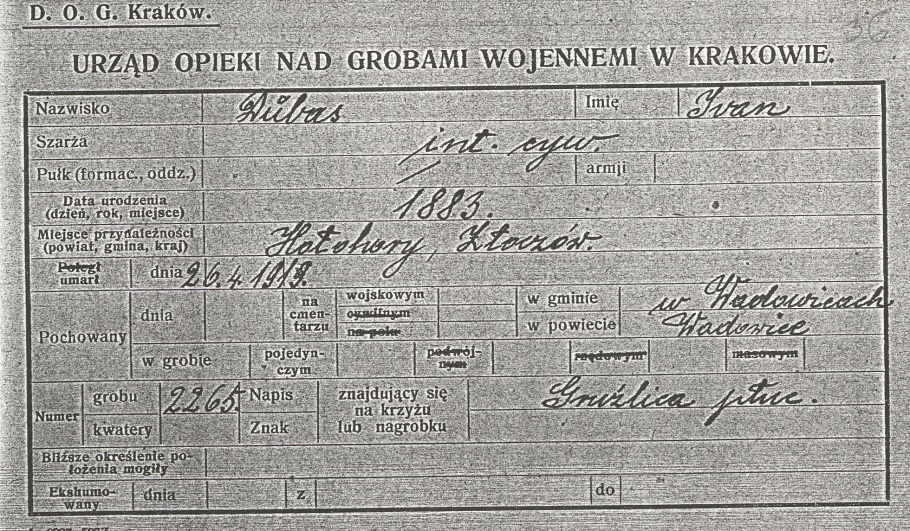 D. O. G. Kraków.
36
URZĄD OPIEKI NAD GROBAMI WOJENNEMI W KRAKOWIE.
Nazwisko Dŭbas Imię Ivan
Szarża int. cyw.
Pułk (formac., oddz.) / armji
Data urodzenia
(dzień, rok, miejsce) 1883.
Miejsce przynależności
(powiat, gmina, kraj) Hołohory, Złoczów.
Poległ
umarł dnia 26.4.1919.
Pochowany dnia na cmen-tarzu wojskowym cywilnym na polu
w gminie w Wadowicach
w powiecie Wadowice
w grobie pojedyn-czym podwój-nym rzędowym masowym
Numer grobu 2265. Napis znajdujący się na krzyżu lub nagrobku Gruźlica płuc.
kwatery Znak
Bliższe określenie po-
łożenia mogiły
Ekshumo-
wany dnia z do